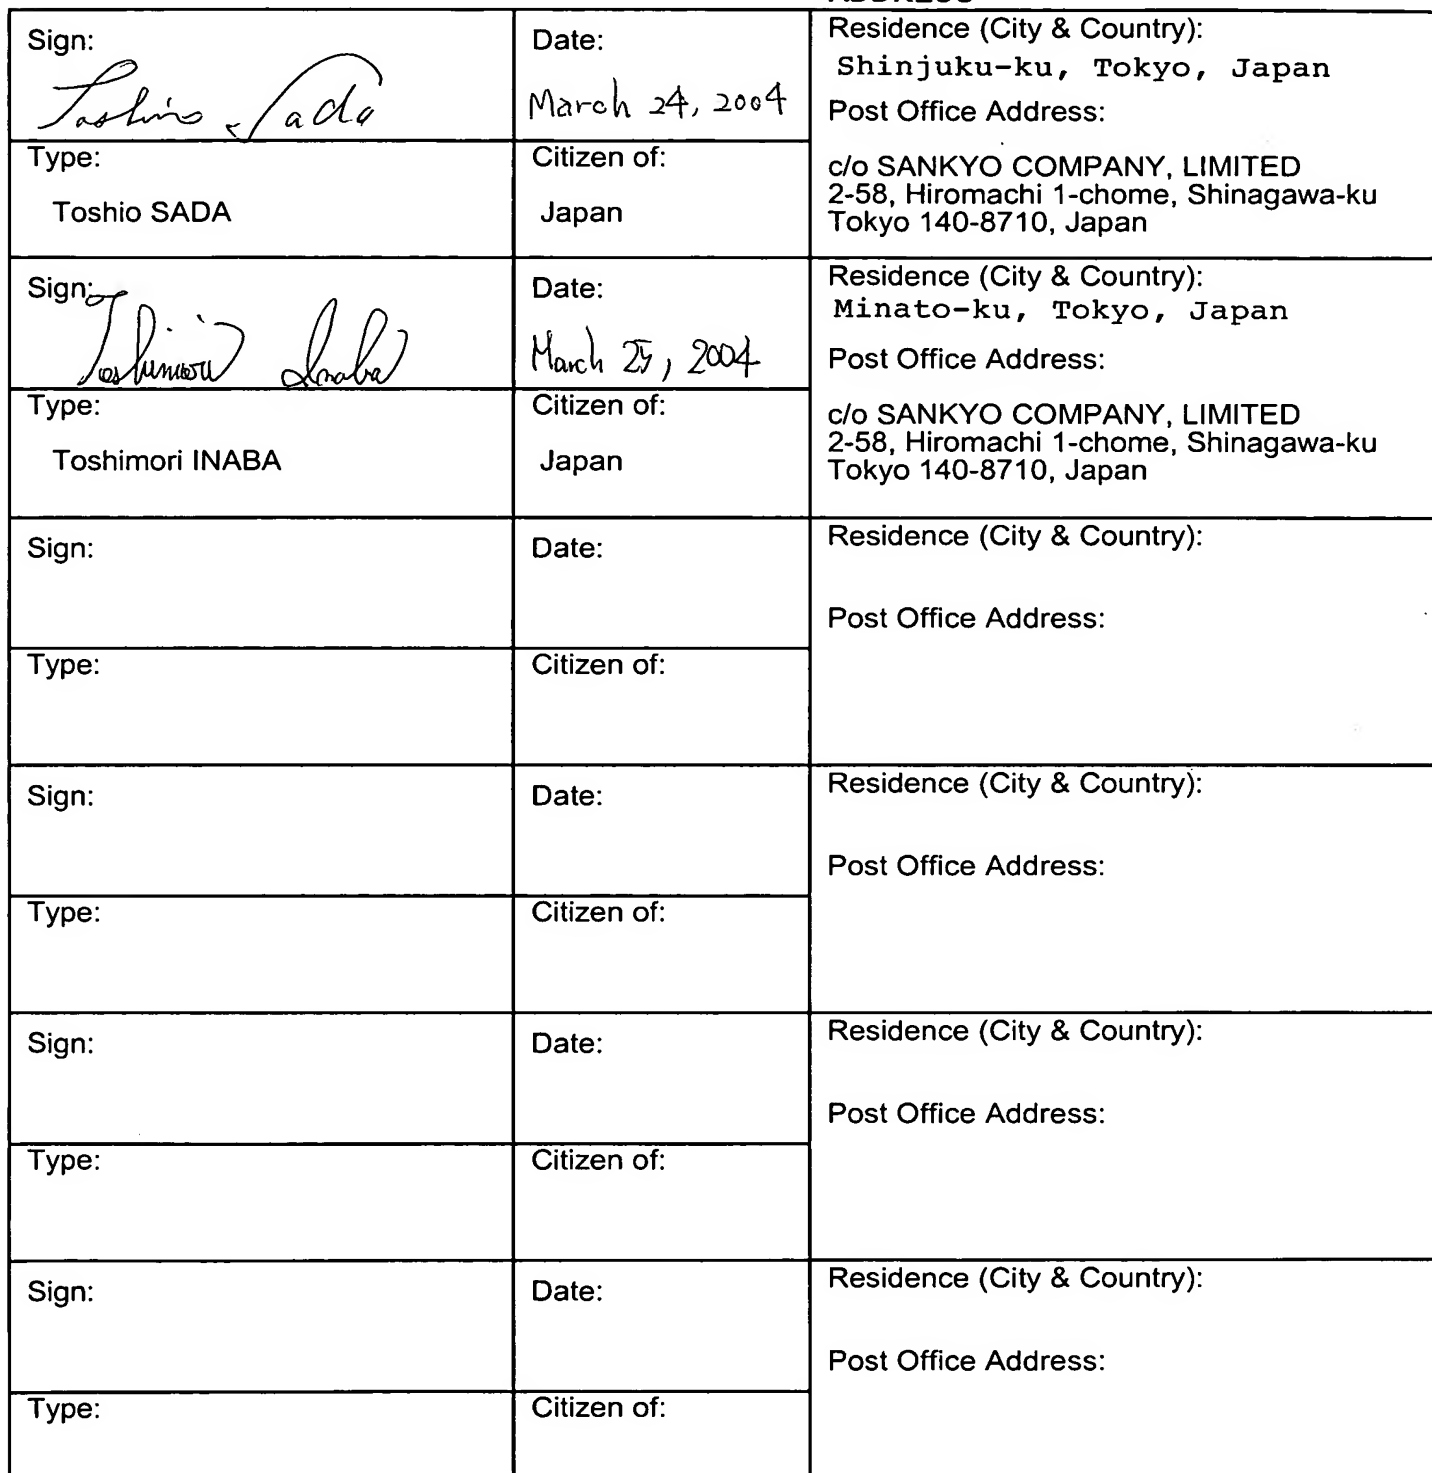 ADDRESS
Sign:
Toshio Sada
Date:
March 24, 2004
Residence (City & Country):
Shinjuku-ku, Tokyo, Japan
Post Office Address:
c/o SANKYO COMPANY, LIMITED
2-58, Hiromachi 1-chome, Shinagawa-ku
Tokyo 140-8710, Japan
Type:
Toshio SADA
Citizen of:
Japan
Sign:
Toshimori Inaba
Date:
March 25, 2004
Residence (City & Country):
Minato-ku, Tokyo, Japan
Post Office Address:
c/o SANKYO COMPANY, LIMITED
2-58, Hiromachi 1-chome, Shinagawa-ku
Tokyo 140-8710, Japan
Type:
Toshimori INABA
Citizen of:
Japan
Sign:
Date:
Residence (City & Country):
Post Office Address:
Type:
Citizen of:
Sign:
Date:
Residence (City & Country):
Post Office Address:
Type:
Citizen of:
Sign:
Date:
Residence (City & Country):
Post Office Address:
Type:
Citizen of:
Sign:
Date:
Residence (City & Country):
Post Office Address:
Type:
Citizen of: